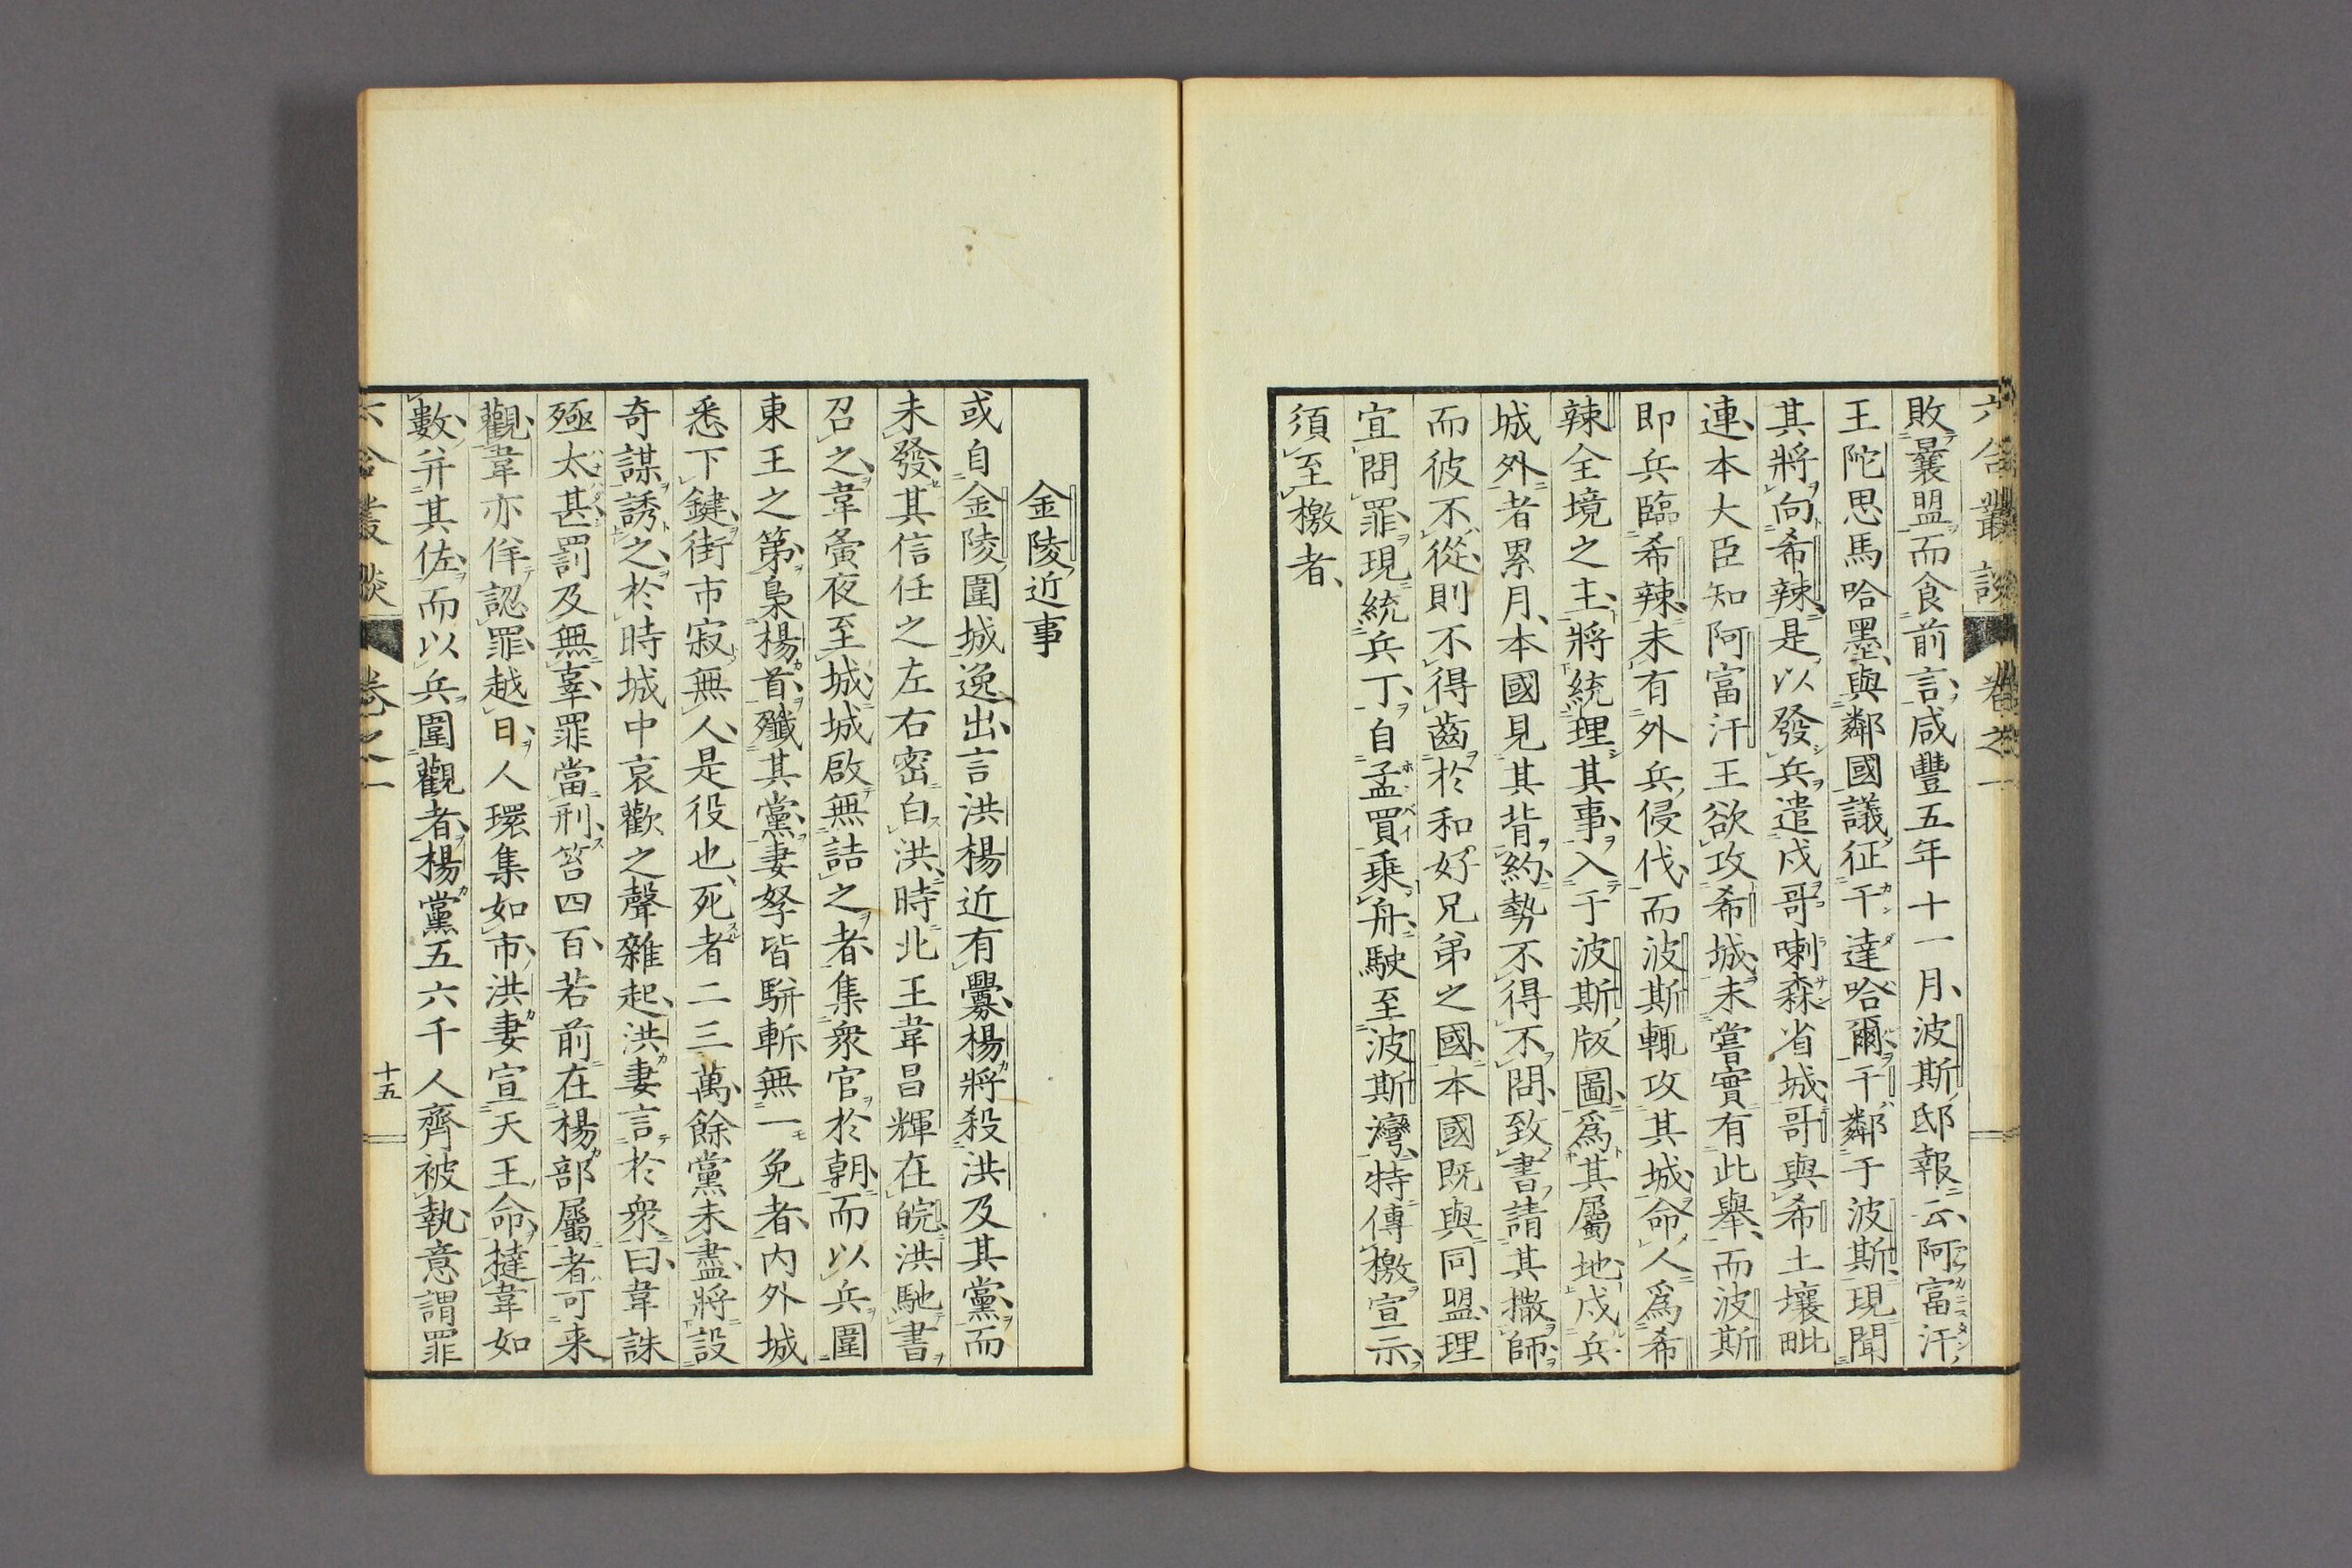 六合叢談 卷之一
敗曩盟而食前言咸豐五年十一月波斯邸報云阿富汗
王陀思馬哈墨與鄰國議征干達哈爾干鄰于波斯現聞
其將向希辣是以發兵遣戍哥喇森省城哥與希土壤毗
連本大臣知阿富汗王欲攻希城未嘗實有此舉而波斯
即兵臨希辣未有外兵侵伐而波斯輒攻其城命人爲希
辣全境之主將統理其事入于波斯版圖爲其屬地戍兵
城外者累月本國見其背約勢不得不問致書請其撒師
而彼不從則不得齒於和好兄弟之國本國既與同盟理
宜問罪現統兵丁自孟買乘舟駛至波斯灣特傳檄宣示
須至檄者
金陵近事
或自金陵圍城逸出言洪楊近有釁楊將殺洪及其黨而
未發其信任之左右密白洪時北王韋昌輝在皖洪馳書
召之韋夤夜至城城啟無詰之者集衆官於朝而以兵圍
東王之第梟楊首殲其黨妻孥皆駢斬無一免者內外城
悉下鍵街市寂無人是役也死者二三萬餘黨未盡將設
奇謀誘之於時城中哀歡之聲雜起洪妻言於衆曰韋誅
殛太甚罰及無辜罪當刑笞四百若前在楊部屬者可来
觀韋亦佯認罪越日人環集如市洪妻宣天王命撻韋如
數并其佐而以兵圍觀者楊黨五六千人齊被執意謂罪
六合叢談 卷之一 十五